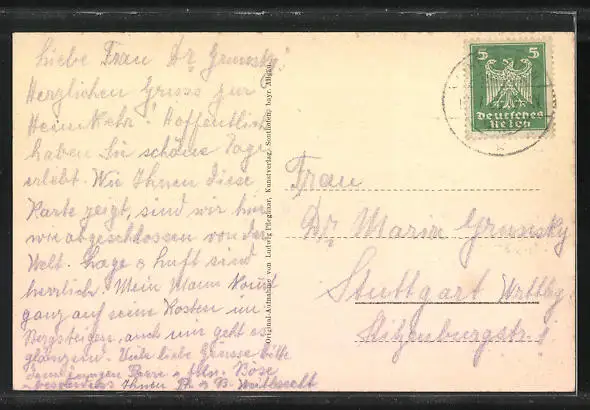 Liebe Frau Dr Grunsky!
Herzlichen Gruss zur
Heimkehr! Hoffentlich
haben Sie schöne Tage
erlebt. Wie Ihnen diese
Karte zeigt, sind wir hier
wie abgeschlossen von der
Welt. Lage & Luft sind
herrlich. Mein Mann kommt
ganz auf seine Kosten im
Bergsteigen, auch mir geht es
glänzend. Viele liebe Grüsse bitte
dem jungen Paare & Frln. Böse
besonders Ihnen
Original-Aufnahme von Ludwig Pfleghaar, Kunstverlag, Sonthofen, bayr. Allgäu.
5 5
Deutsches
Reich
Frau
Dr Maria Grunsky
Stuttgart Wrttbg.
Hitzenburgstr. 1